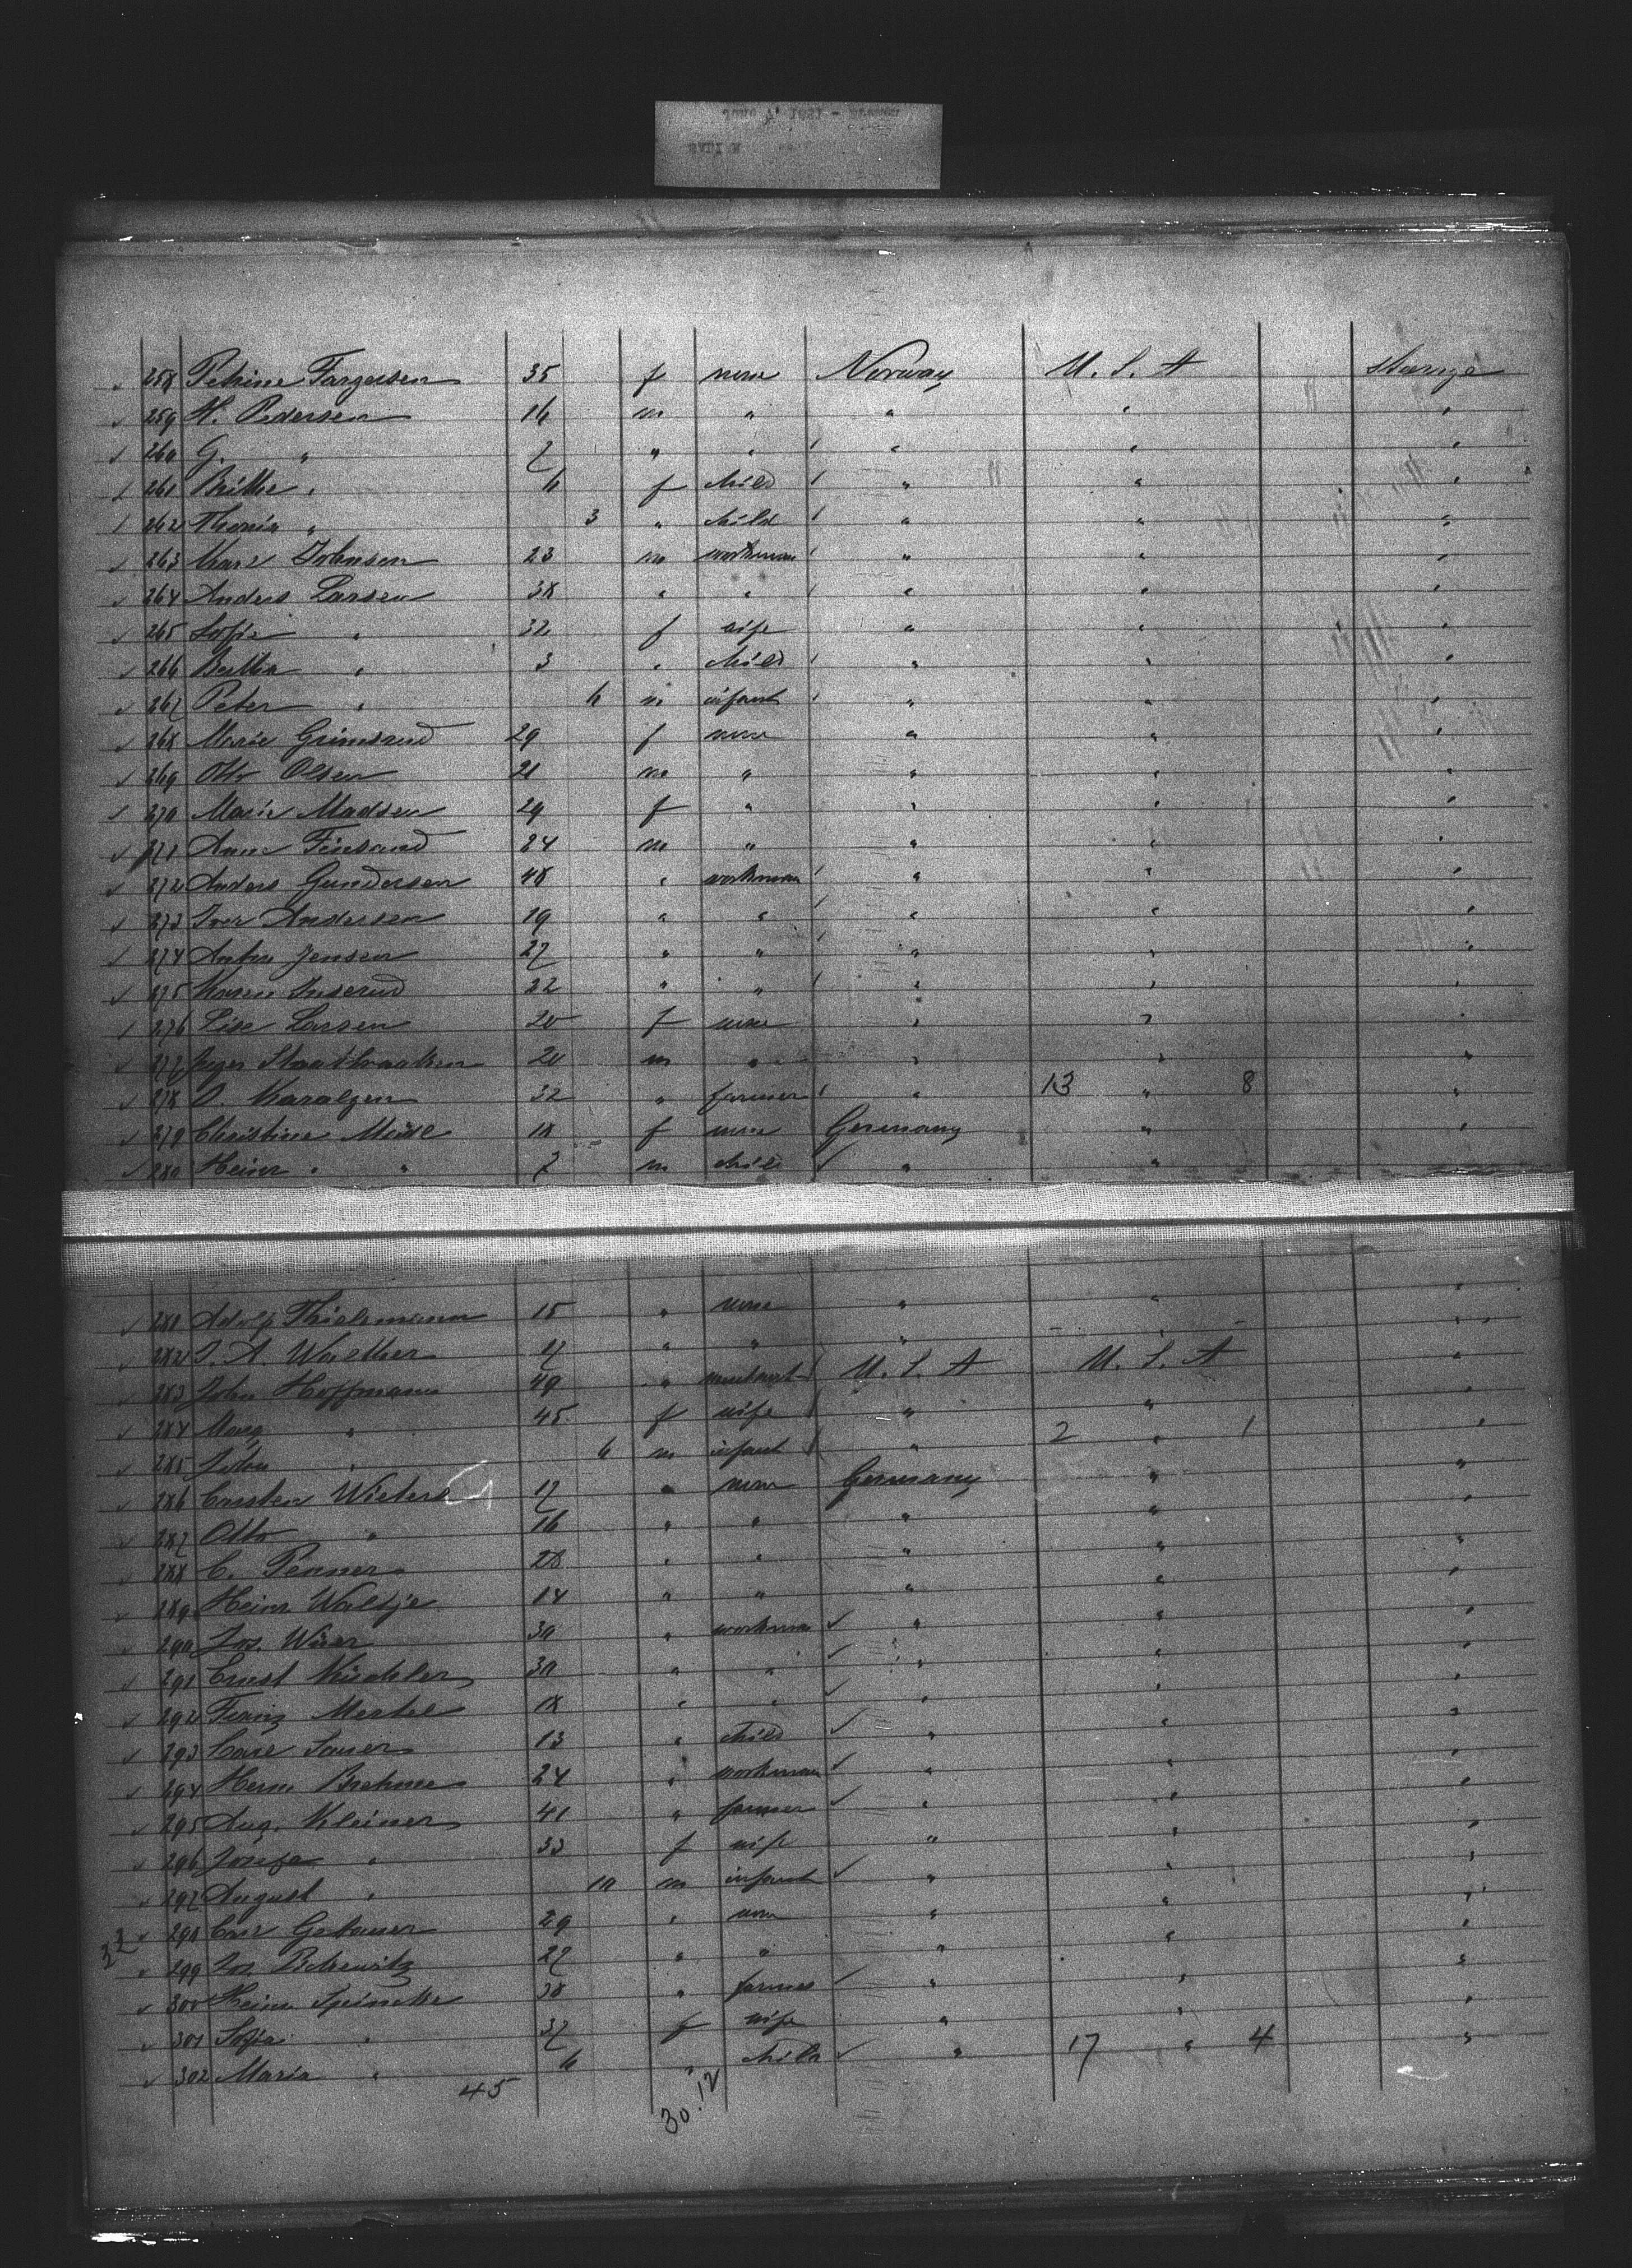 258 Petrine Torgersen 35 f none Norway U. S. A steerage
259 H. Pedersen 16 m " " " "
260 G. " 7 " " " " "
261 " 6 f child " " "
262 " 3 " child " " "
263 Johnsen 23 m workman " " "
264 Anders Larsen 38 " " " " "
265 Sofie " 32 f wife " " "
266 Bertha " 3 " child " " "
267 Peter " 6 m infant " " "
268 Marie Grimsrud 29 f none " " "
269 Otto Olsen 21 m " " " "
270 Marie Madsen 29 f " " " "
271 24 m " " " "
272 Anders Gundersen 48 " workman " " "
273 Iver Andersen 19 " " " " "
274 Jensen 27 " " " " "
275 22 " " " " "
276 Lise Larsen 20 f none " " "
277 20 m " " " "
278 O. 32 " farmer " 13 " 8 "
279 Christine 18 f none Germany " "
280 Heinr. " 7 m child " " "
281 Adolf Thielemann 15 " none " " "
282 J. A. Walther 27 " " " " "
283 John Hoffmann 49 " U. S. A U. S. A "
284 Marg " 45 f wife " " "
285 John " 6 m infant " 2 " 1 "
286 Carsten Wieters 17 " none Germany " "
287 Otto " 16 " " " " "
288 C. Penner 28 " " " " "
289 Heinr. Waltje 14 " " " " "
290 Jos. 30 " workman " " "
291 Ernst Küchler 30 " " " " "
292 Franz Mertel 18 " " " " "
293 Carl Sauer 13 " child " " "
294 Herm Brehme 24 " workman " " "
295 Aug. Kleiner 41 " farmer " " "
296 Josefa " 33 f wife " " "
297 August " 10 m infant " " "
298 Carl Gebauer 29 " none " " "
299 Jos 27 " " " " "
300 Heinr 38 " farmer " " "
301 Sofia " 37 f wife " " "
302 Maria " 6 " child " 17 " 4 "
45 30.12